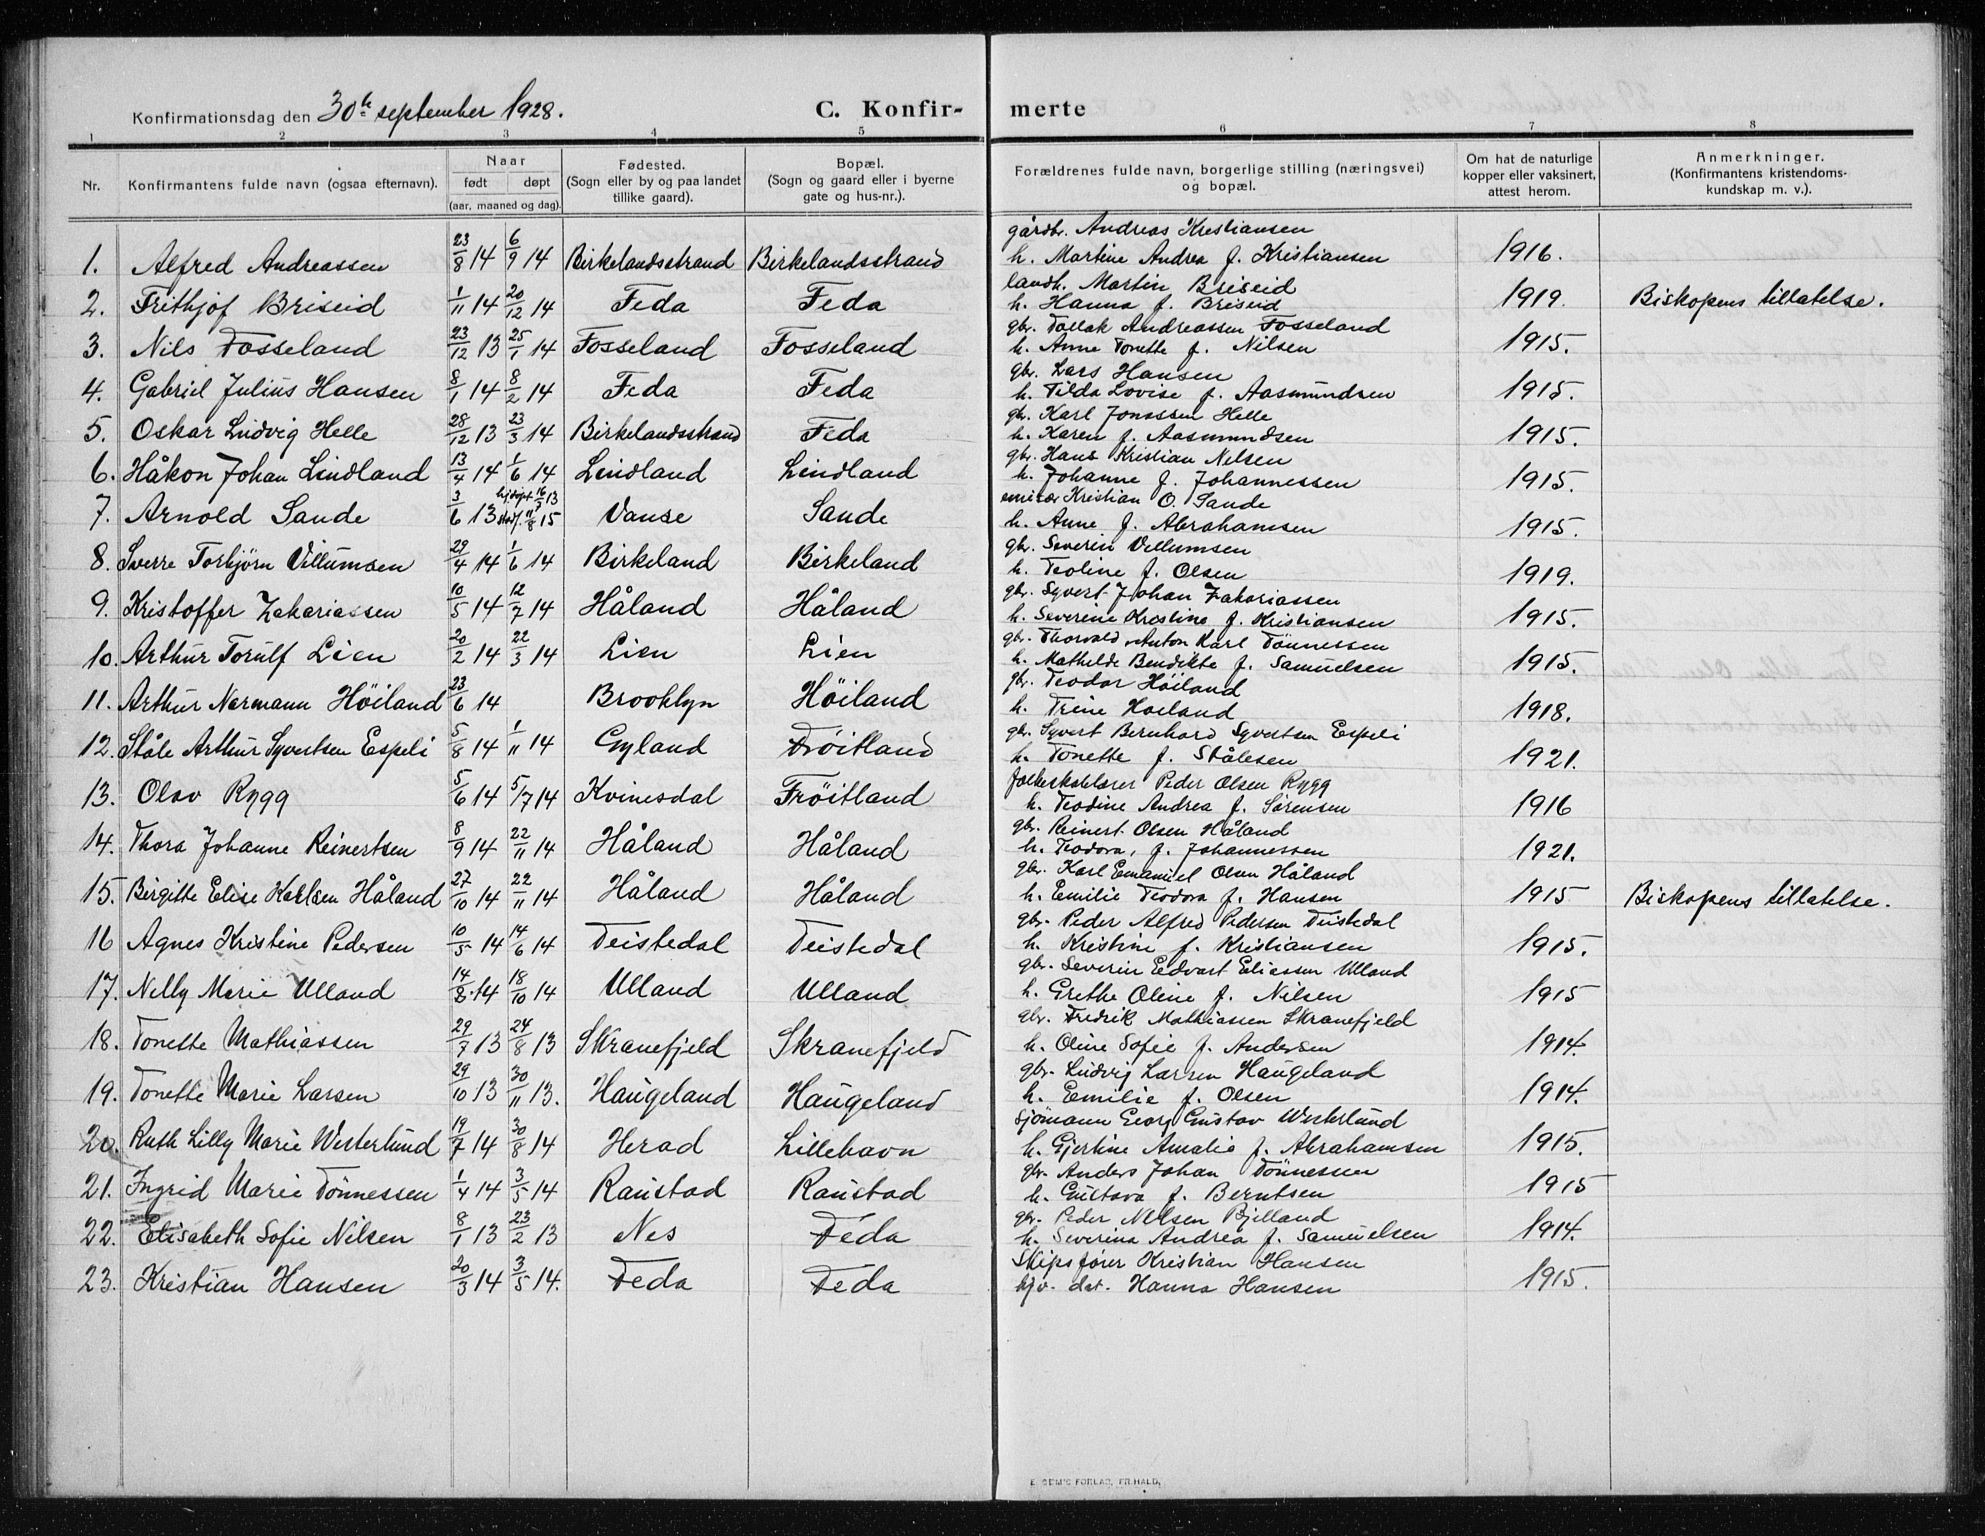 Konfirmationsdag den 30te september 1928. C. Konfir- merte
1 2 3 4 5 6 7 8
Nr. Konfirmantens fulde navn (ogsaa efternavn). Naar født døpt (aar, maaned og dag). Fødested. (Sogn eller by og paa landet tillike gaard). Bopæl. (Sogn og gaard eller i byerne gate og hus-nr.). Forældrenes fulde navn, borgerlige stilling (næringsvei) og bopæl. Om hat de naturlige kopper eller vaksinert, attest herom. Anmerkninger. (Konfirmantens kristendoms-kundskap m. v.).
gårdbr. Andreas Kristiansen
1. Alfred Andreassen 23/8 14 6/9 14 Birkelandsstrand Birkelandsstrand h. Martine Andrea f. Kristiansen 1916.
landh. Martin Briseid
2. Frithjof Briseid 1/11 14 20/12 14 Feda Feda h. Hanna f. Briseid 1919. Biskopens tillatelse.
gbr. Tollak Andreassen Fosseland
3. Nils Fosseland 23/12 13 25/1 14 Fosseland Fosseland h. Anne Tonette f. Nilsen 1915.
gbr. Lars Hansen
4. Gabriel Julius Hansen 8/1 14 8/2 14 Feda Feda h. Tilda Lovise f. Aasmundsen 1915.
gbr. Karl Jonassen Helle
5. Oskar Ludvig Helle 28/12 13 23/3 14 Birkelandsstrand Feda h. Karen f. Aasmundsen 1915.
gbr. Hans Kristian Nilsen
6. Håkon Johan Lindland 13/4 14 1/6 14 Lindland Lindland h. Johanne f. Johannessen 1915.
emisær Kristian O. Sande
7. Arnold Sande 3/6 13 hj.døpt 16/3 13 stadf. 11/8 15 Vanse Sande h. Anne f. Abrahamsen 1915.
gbr. Severin Villumsen
8. Sverre Torbjørn Villumsen 29/4 14 1/6 14 Birkeland Birkeland h. Teoline f. Olsen 1919.
gbr. Syvert Johan Zakariassen
9. Kristoffer Zakariassen 10/5 14 12/7 14 Håland Håland h. Severine Kristine f. Kristiansen 1915.
gbr. Thorvald Anton Karl Tönnessen
10. Arthur Torulf Lien 20/2 14 22/3 14 Lien Lien h. Mathilde Bendikte f. Samuelsen 1915.
gbr. Teodor Höiland
11. Arthur Normann Höiland 23/6 14 Brooklyn Höiland h. Trine Hoiland 1918.
gbr. Syvert Bernhard Syvertsen Espeli
12. Ståle Arthur Syvertsen Espeli 5/8 14 1/11 14 Gyland Fröitland h. Tonette f. Stålesen 1921.
folkeskolelærer Peder Olsen Rygg
13. Olav Rygg 5/6 14 5/7 14 Kvinesdal Fröitland h. Teodine Andrea f. Sörensen 1916
gbr. Reinert Olsen Håland
14. Thora Johanne Reinertsen 8/9 14 22/11 14 Håland Håland h. Teodora, f. Johannessen 1921.
gbr. Karl Emanuel Olsen Håland
15. Birgitte Elise Karlsen Håland 27/10 14 22/11 14 Håland Håland h. Emilie Teodora f. Hansen 1915 Biskopens tillatelse.
gbr. Peder Alfred Pedersen Teistedal
16 Agnes Kristine Pedersen 10/5 14 14/6 14 Teistedal Teistedal h. Kristine f. Kristiansen 1915.
gbr. Severin Edvart Eliassen Ulland
17. Nelly Marie Ulland 14/8 14 18/10 14 Ulland Ulland h. Grethe Oline f. Nilsen 1915
gbr. Fredrik Mathiassen Skranefjeld
18. Tonette Mathiassen 29/7 13 24/8 13 Skranefjeld Skranefjeld h. Oline Sofie f. Andersen 1914.
gbr. Ludvig Larsen Haugeland
19. Tonette Marie Larsen 29/10 13 30/11 13. Haugeland Haugeland h. Emilie f. Olsen 1914.
sjömann Georg Gustav Westerlund
20. Ruth Lilly Marie Westerlund 19/7 14 30/8 14 Herad Lillehavn h. Gjertine Amalie f. Abrahamsen 1915.
gbr. Anders Johan Tönnessen
21. Ingrid Marie Tönnessen 1/4 14 3/5 14 Raustad Raustad h. Gustava f. Berntsen 1915
gbr. Peder Nilsen Bjelland
22. Elisabeth Sofie Nilsen 8/1 13 23/2 13 Nes Feda h. Severina Andrea f. Samuelsen 1914.
Skipsfører Kristian Hansen
23. Kristian Hansen 20/3 14 3/5 14. Feda Feda hjv. dat. Hanna Hansen 1915.
E. SEM'S FORLAG, FR.HALD,